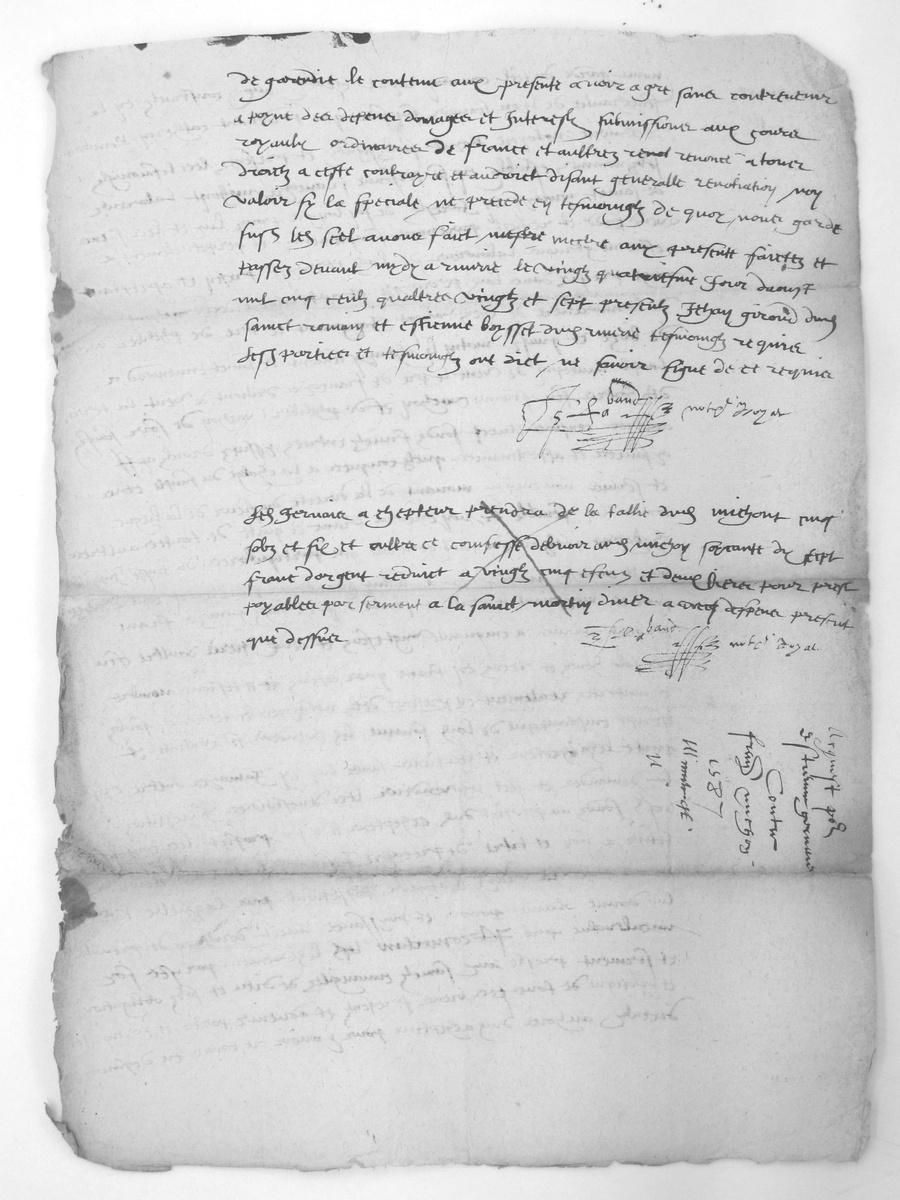 de garendie le contenu aux presente avoir a gre sans contrevenir
a poyne des depens domages et interestz submissions aux cours
royaulx ordinaires de france et aultres renoncé a tous
droictz a ceste contrayre et au droict disant generalle renotiation non
valoir sy la speciale ne precede en tesmoingz de quoy nous garde
susd led scel avons faict mettre aux presente faictes et
passes devant aud a riverie le vingt quatriesme jour daoust
mil cinq centz quatres vingtz et sept presentz Jehan girond dud
sainct romain et estienne boysset dud riverie tesmoingz requis
lesd parties et tesmoingz ont dict ne savoir signe de ce requis
notere Royal
led gervais achepteur prendra de la tallie dud michont cinq
solz et six et oultre ce confesse debvoir aud michon soixante dix sept
franc dargent reduict a vingtz cinq escuz et deux tiers pour prest
poyables par serment a la sainct martin diver avecq despens present
que dessus
notere Royal
Acquest pour
estienne germain
Contre
michon
1587